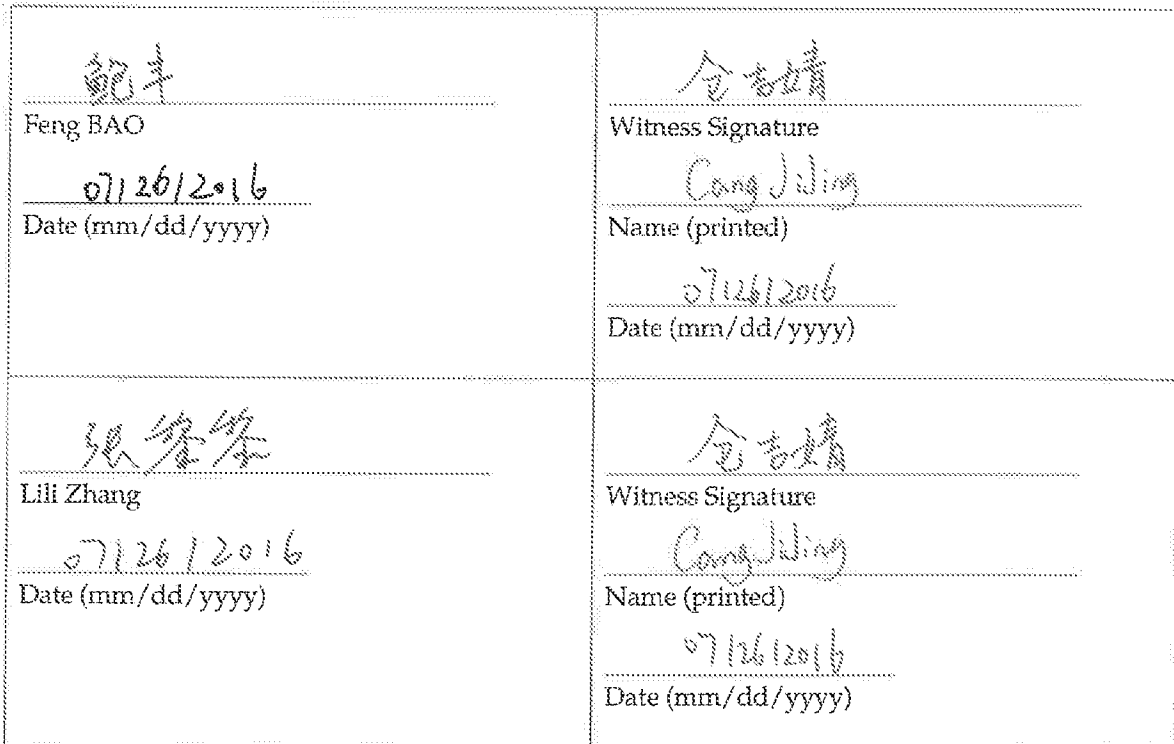 鲍丰
Feng BAO
07/26/2016
Date (mm/dd/yyyy)
仓吉婧
Witness Signature
Cang JiJing
Name (printed)
07/26/2016
Date (mm/dd/yyyy)
张
Lili Zhang
07/26/2016
Date (mm/dd/yyyy)
仓吉婧
Witness Signature
Cang JiJing
Name (printed)
07/26/2016
Date (mm/dd/yyyy)